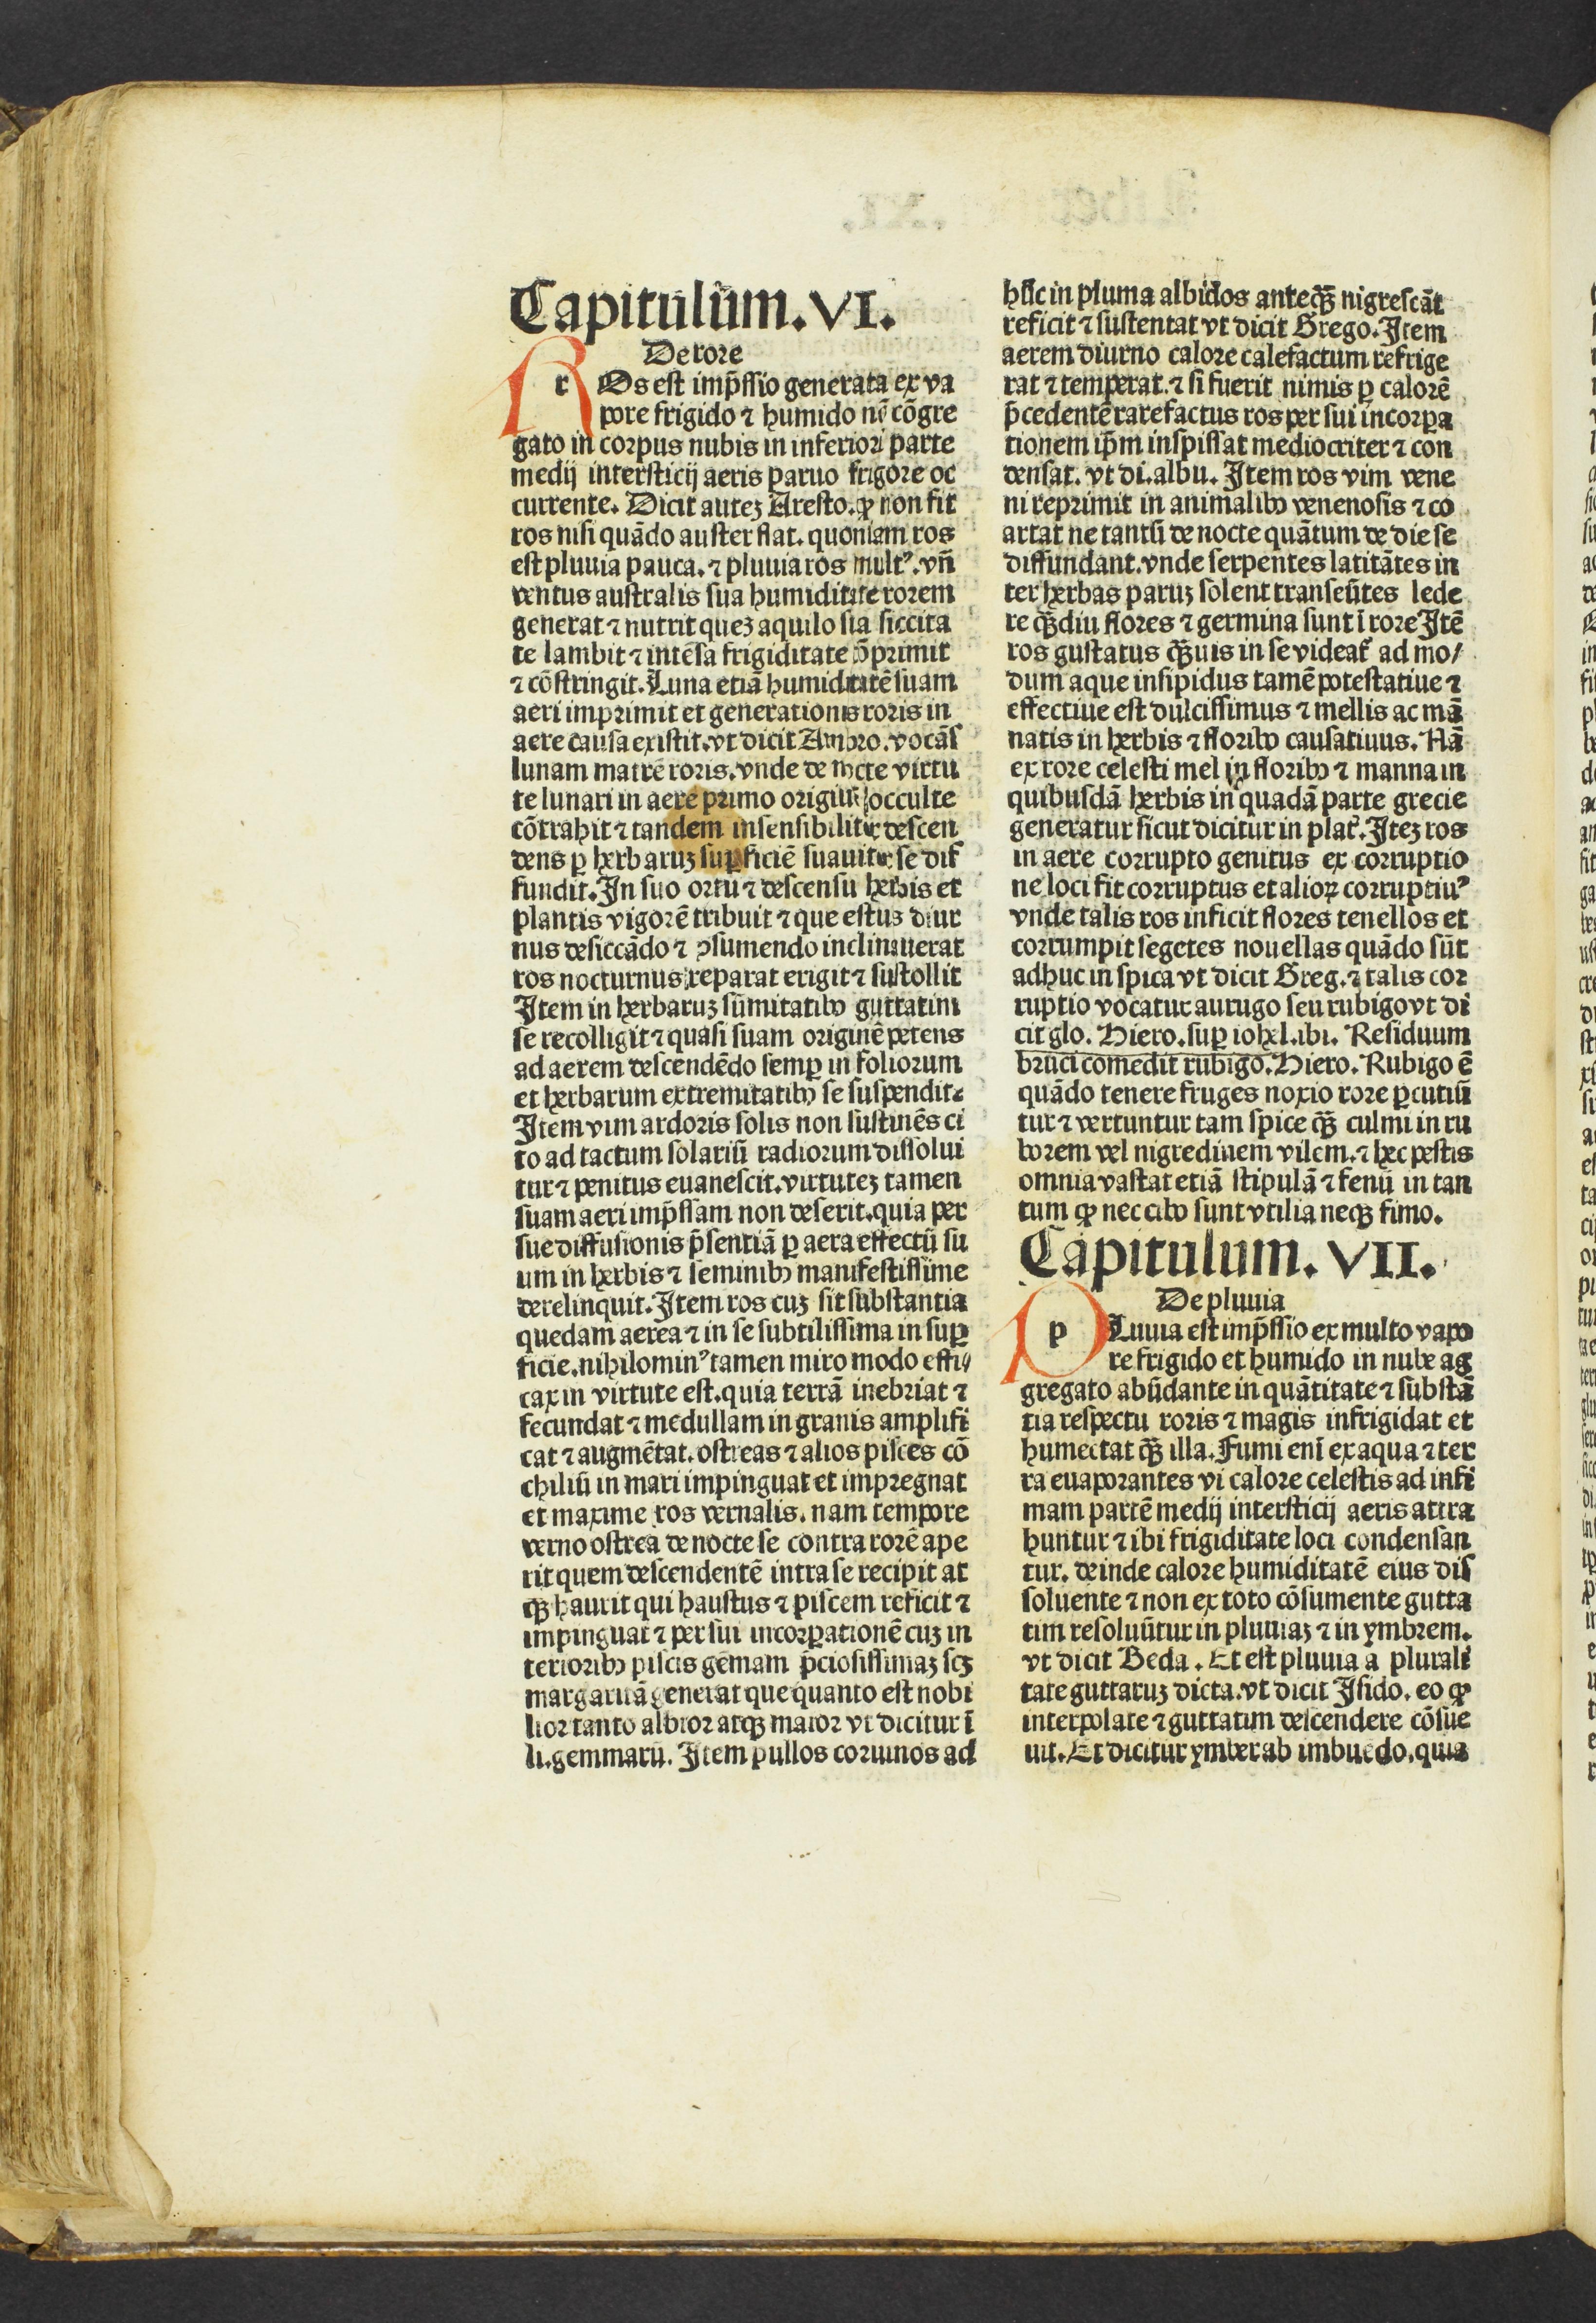 Capitulum. VI.
De rore
ROs est imp̄ssio generata ex va
pore frigido ⁊ humido nō cōgre
gato in corpus nubis in inferiori parte
medij intersticij aeris paruo frigore oc
currente. Dicit autez Aresto. ꝙ non fit
ros nisi quādo auster flat. quoniam ros
est pluuia pauca. ⁊ pluuia ros multꝰ. vñ
ventus australis sua humiditate rorem
generat ⁊ nutrit quez aquilo sua siccita
te lambit ⁊ intēsa frigiditate ꝯprimit
⁊ cōstringit. Luna etiā humiditatē suam
aeri imprimit et generationis roris in
aere causa existit. vt dicit Ambro. vocās
lunam matrē roris. vnde de nocte virtu
te lunari in aere primo origiꝫ occulte
cōtrahit ⁊ tandem insensibiliter descen
dens ꝑ herbaruꝫ suꝑficiē suauiter se dif
fundit. In suo ortu ⁊ descensu herbis et
plantis vigorē tribuit ⁊ que estus diur
nus desiccādo ⁊ ꝯsumendo inclinauerat
ros nocturnus reparat erigit ⁊ sustollit
Item in herbaruꝫ sūmitatibꝰ guttatim
se recolligit ⁊ quasi suam originē petens
ad aerem descendēdo semꝑ in foliorum
et herbarum extremitatibꝰ se suspendit.
Item vim ardoris solis non sustinēs ci
to ad tactum solariū radiorum dissolui
tur ⁊ penitus euanescit. virtutez tamen
suam aeri imp̄ssam non deserit. quia per
sue diffusionis p̄sentiā ꝑ aera effectū su
um in herbis ⁊ seminibꝰ manifestissime
derelinquit. Item ros cuꝫ sit substantia
quedam aerea ⁊ in se subtilissima in suꝑ
ficie. nihilominꝰ tamen miro modo effi
cax in virtute est. quia terrā inebriat ⁊
fecundat ⁊ medullam in granis amplifi
cat ⁊ augmētat. ostreas ⁊ alios pisces cō
chiliū in mari impinguat et impregnat
et maxime ros vernalis. nam tempore
verno ostrea de nocte se contra rorē ape
rit quem descendentē intra se recipit at
qꝫ haurit qui haustus ⁊ piscem reficit ⁊
impinguat ⁊ per sui incorꝑationē cuꝫ in
terioribꝰ piscis gēmam p̄ciosissimaꝫ scꝫ
margaritā generat que quanto est nobi
lior tanto albior atqꝫ maior vt dicitur ī
li. gemmarū. Item pullos coruinos ad
huc in pluma albidos anteqꝫ̄ nigrescāt
reficit ⁊ sustentat vt dicit Grego. Item
aerem diurno calore calefactum refrige
rat ⁊ temperat. ⁊ si fuerit nimis ꝑ calorē
p̄cedentē rarefactus ros per sui incorꝑa
tionem ip̄m inspissat mediocriter ⁊ con
densat. vt di. albu. Item ros vim vene
ni reprimit in animalibꝰ venenosis ⁊ co
artat ne tantū de nocte quātum de die se
diffundant. vnde serpentes latitātes in
ter herbas paruꝫ solent transeūtes lede
re qꝫ̄diu flores ⁊ germina sunt ī rore Itē
ros gustatus qꝫ̄uis in se videat̄ ad mo/
dum aque insipidus tamē potestatiue ⁊
effectiue est dulcissimus ⁊ mellis ac mā
natis in herbis ⁊ floribꝰ causatiuus. Nā
ex rore celesti mel in floribꝰ ⁊ manna in
quibusdā herbis in quadā parte grecie
generatur sicut dicitur in plat̄. Itez ros
in aere corrupto genitus ex corruptio
ne loci fit corruptus et alioꝝ corruptiuꝰ
vnde talis ros inficit flores tenellos et
corrumpit segetes nouellas quādo sūt
adhuc in spica vt dicit Greg. ⁊ talis cor
ruptio vocatur aurugo seu rubigo vt di
cit glo. Hiero. suꝑ iohel. ibi. Residuum
bruci comedit rubigo. Hiero. Rubigo ē
quādo tenere fruges noxio rore ꝑcutiū
tur ⁊ vertuntur tam spice qꝫ̄ culmi in ru
borem vel nigredinem vilem. ⁊ hec pestis
omnia vastat etiā stipulā ⁊ fenū in tan
tum ꝙ nec cibo sunt vtilia neqꝫ fimo.
Capitulum. VII.
De pluuia
PLuuia est imp̄ssio ex multo vapo
re frigido et humido in nube ag
gregato abūdante in quātitate ⁊ substā
tia respectu roris ⁊ magis infrigidat et
humectat qꝫ̄ illa. Fumi enī ex aqua ⁊ ter
ra euaporantes vi calore celestis ad infi
mam partē medij intersticij aeris attra
huntur ⁊ ibi frigiditate loci condensan
tur. deinde calore humiditatē eius dis
soluente ⁊ non ex toto cōsumente gutta
tim resoluūtur in pluuiaꝫ ⁊ in ymbrem.
vt dicit Beda. Et est pluuia a plurali
tate guttaruꝫ dicta. vt dicit Isido. eo ꝙ
interpolate ⁊ guttatim descendere cōsue
uit. Et dicitur ymber ab imbuēdo. quia